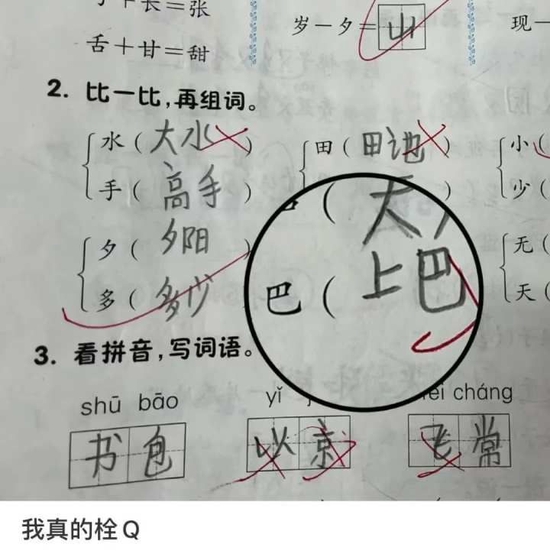 长=张
舌+甘=甜
岁-夕=山
现一
2. 比一比,再组词。
水(大水) 田(田地) 小(
手(高手) 少(
夕(夕阳) 无(
多(多少) 巴(上巴 天(
3. 看拼音,写词语。
shū bāo yǐ cháng
书包 以京 飞常
我真的栓Q